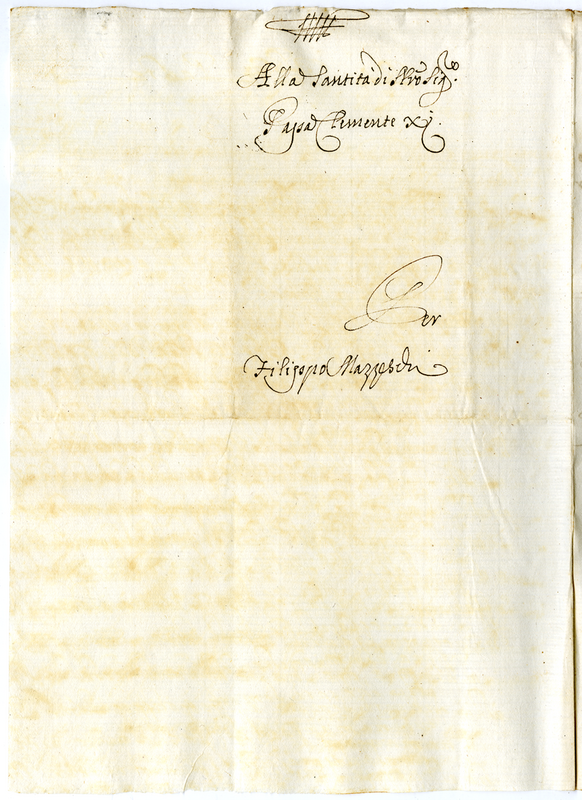 Alla Santità di Nro Sigre.
Papa Clemente XI.
Per
Filippo Mazzeschi